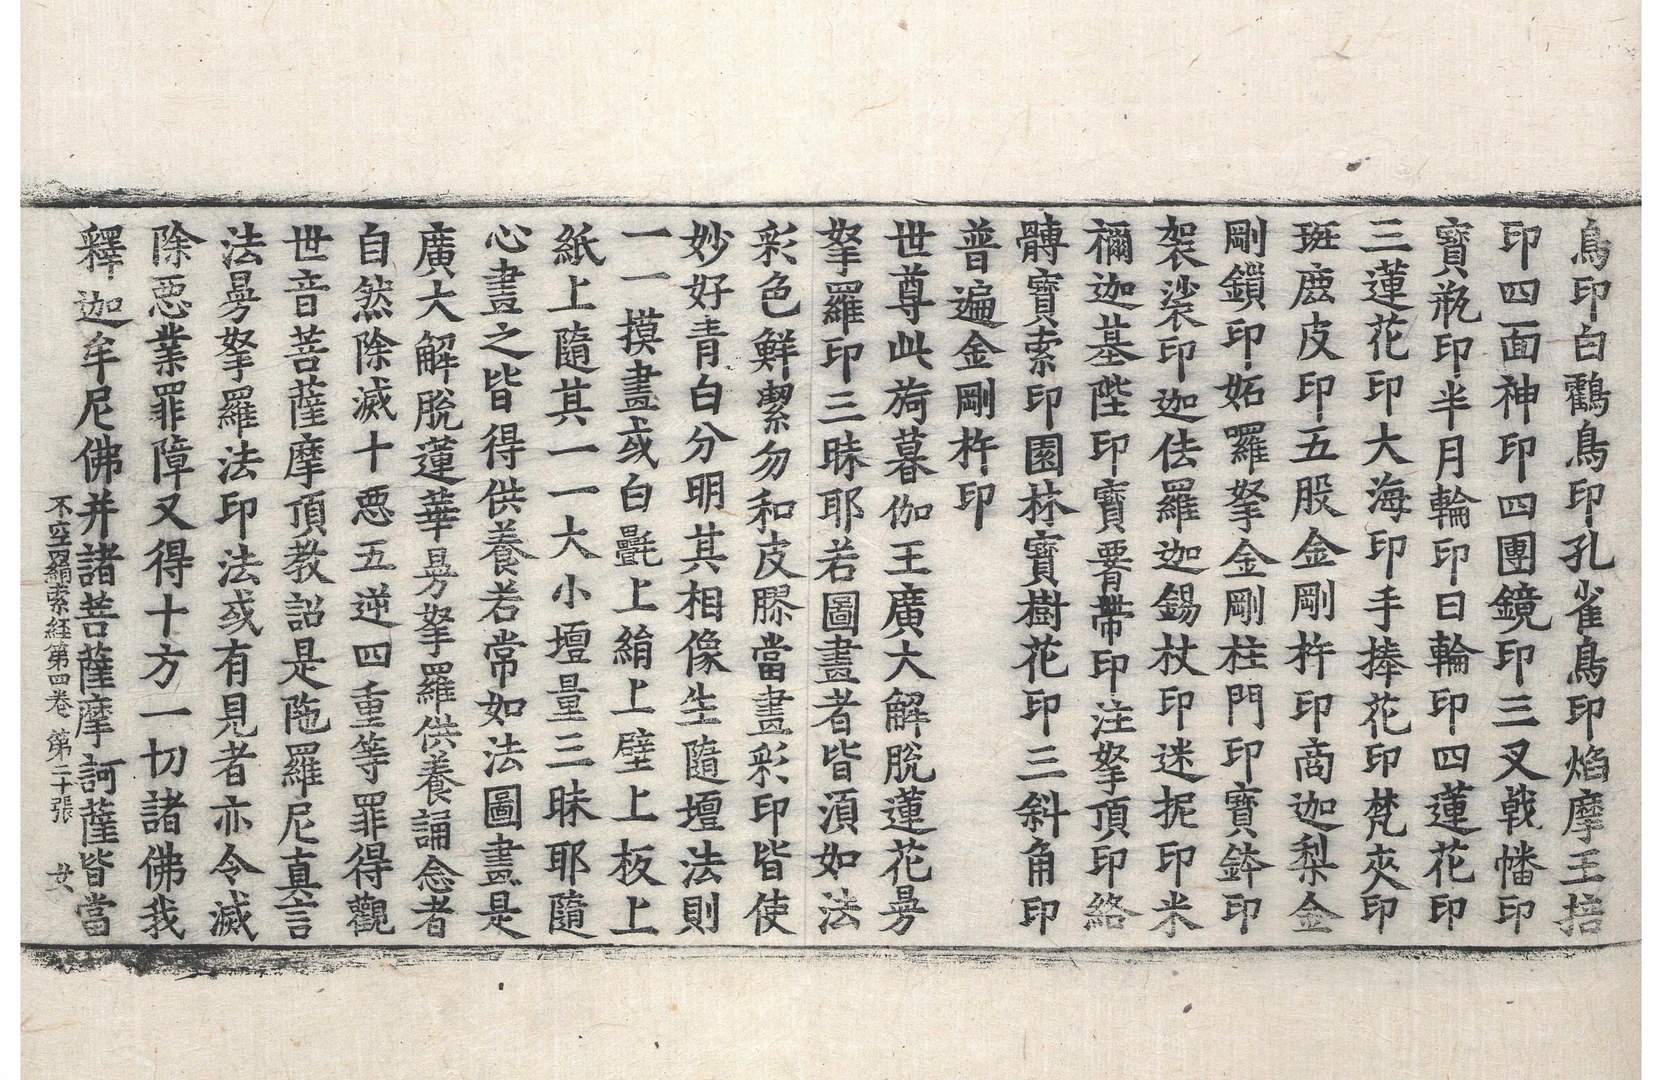 鳥印白鸖鳥印孔雀鳥印焰摩王棓
印四面神印四團鏡印三叉戟幡印
寶瓶印半月輪印日輪印四蓮花印
三蓮花印大海印手捧花印梵夾印
斑鹿皮印五股金剛杵印商迦梨金
剛鎖印妬囉拏金剛柱門印寶鉢印
袈裟印迦佉羅迦錫杖印迷抳印米
禰迦基陛印寶要帶印注拏頂印絡
髆寶索印園林寶樹花印三斜角印
普遍金剛杵印
世尊此旖暮伽王廣大解脫蓮花曼
拏羅印三昧耶若圖畫者皆湏如法
彩色鮮潔勿和皮膠當畫彩印皆使
妙好青白分明其相像生隨壇法則
一一摸畫或白㲲上絹上壁上板上
紙上隨其一一大小壇量三昧耶隨
心畫之皆得供養若常如法圖畫是
廣大解脫蓮華曼拏羅供養誦念者
自然除滅十惡五逆四重等罪得觀
世音菩薩摩頂教詔是陁羅尼真言
法曼拏羅法印法或有見者亦令滅
除惡業罪障又得十方一切諸佛我
釋迦牟尼佛并諸菩薩摩訶薩皆當
不空罥索経第四卷 第二十張 女